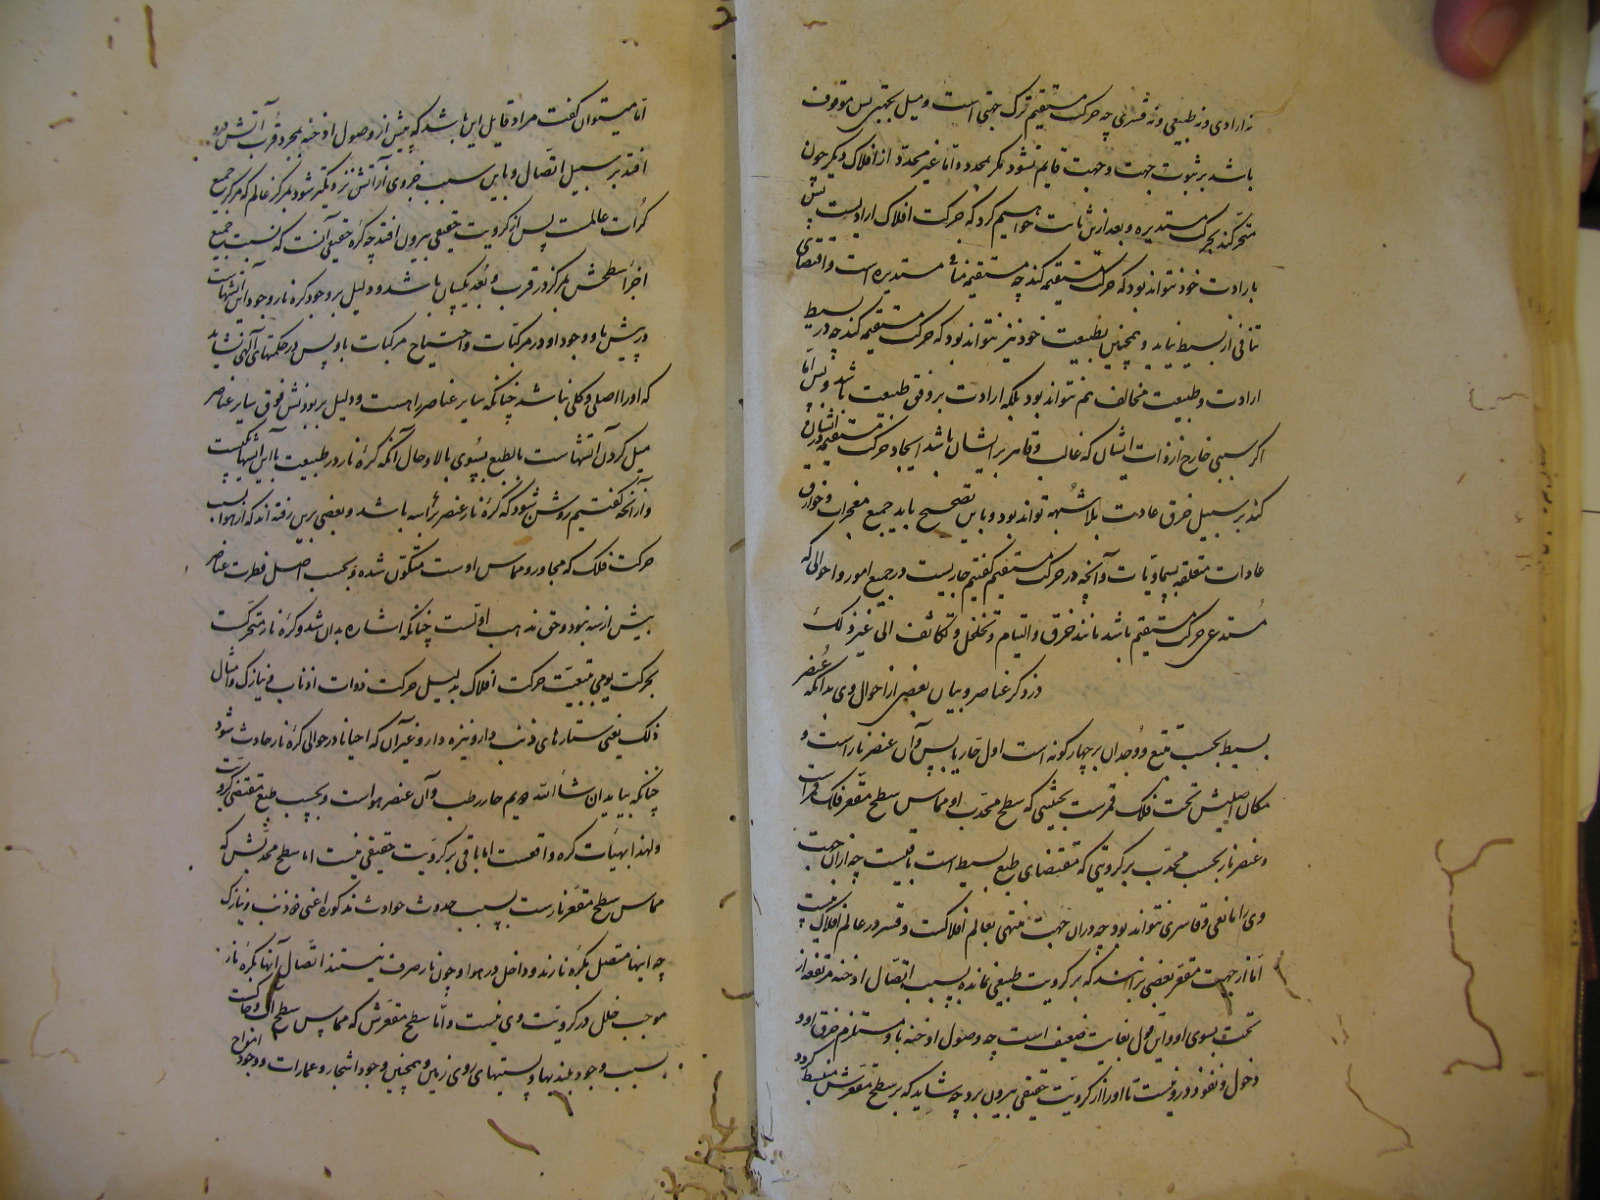 نه ارادی و نه طبیعی و نه قسری چه حرکت مستقیم ترک جهتی است و میل بجهتی پس موقوف
باشد بر ثبوت جهت و جهت قایم نشود مگر بمحدد و اما غیر محدد از افلاک دیگر چون
متحرکند بحرکت مستدیره و بعد ازین اثبات خواهیم کرد که حرکت افلاک ارادیست پس
بارادت خود نتواند بود که حرکت مستقیمه کند چه مستقیمه منافی مستدیره است و اقتضای
تنافی از بسیط نیاید و همچنین بطبیعت خود نیز نتواند بود که حرکت مستقیمه کند چه در بسیط
ارادت و طبیعت مخالف هم نتواند بود بلکه ارادت بر وفق طبیعت باشد و بس اما
اگر سببی خارج از ذات ایشان که غالب و قاهر بر ایشان باشد ایجاد حرکت مستقیمه در ایشان
کند بر سبیل خرق عادت بلا شبهه تواند بود و باین تصحیح باید جمیع معجزات و خوارق
عادات متعلقه بسماویات و آنچه در حرکت مستقیم گفتیم جاریست در جمیع امور و احوالی که
مستدعی حرکت مستقیم باشد مانند خرق و التیام و تخلخل و تکاثف الی غیر ذلک
در ذکر عناصر و بیان بعضی از احوال وی بدانکه عنصر
بسیط بحسب تتبع و وجدان بر چهار گونه است اول حار یابس و آن عنصر نار است و
مکان اصلیش تحت فلک قمرست بحیثیتی که سطح محدب او مماس سطح مقعر فلک قمر است
و عنصر نار بحسب محدب بر کرویتی که مقتضای طبع بسیط است باقیست چه ازان جهت
وی را مانعی و قاسری نتواند بود چه دران جهت منتهی بعالم افلاکست و قسر در عالم افلاک نیست
اما از جهت مقعر بعضی برانند که بر کرویت طبیعی نمانده بسبب اتصال ادخنه مرتفعه از
تحت بسوی او و این قول بغایت ضعیف است چه وصول ادخنه باو مستلزم خرق او و
دخول و نفوذ در و نیست تا او را از کرویت حقیقی بیرون برد چه شاید که بر سطح مقعرش منبسط گردد
اما میتوان گفت مراد قایل این باشد که پیش از وصول ادخنه بمجرد قرب آتش درو
افتد بر سبیل اتصال و باین سبب جزوی از آتش نزدیکتر شود بمرکز عالم که مرکز جمیع
کرات عالمست پس از کرویت حقیقی بیرون افتد چه کره حقیقی آنست که نسبت جمیع
اجزا سطحش بمرکز در قرب و بعد یکسان باشد و دلیل بر وجود کره نار وجود این آتشهاست
در پیش ما و وجود او در مرکبات و احتیاج مرکبات باو پس در حکمتهای الهی نشاید
که او را اصلی و کلی نباشد چنانکه سایر عناصر را هست و دلیل بر بودنش فوق سایر عناصر
میل کردن آتشهاست بالطبع بسوی بالا و حال آنکه کره نار در طبیعت با این آتشها یکیست
و از آنچه گفتیم روشن شود که کره نار عنصر برأسه باشد و بعضی برین رفته اند که از هوا بسبب
حرکت فلک که مجاور و مماس اوست متکون شده و بحسب اصل فطرت عناصر
بیش از سه نبود و حق مذهب اولست چنانکه اشاره بدان شد و کره نار متحرکست
بحرکت یومی بتبعیت حرکت افلاک بدلیل حرکت ذوات اذناب و نیازک و امثال
ذلک یعنی ستارهای ذنب دار و نیزه دار و غیر آن که احیانا در حوالی کره نار حادث شود
چنانکه بیاید ان شاء الله دویم حار رطب و آن عنصر هواست و بحسب طبع مقتضی کرویت
و لهذا بهیأت کره واقعست اما باقی بر کرویت حقیقی نیست اما سطح محدبش که
مماس سطح مقعر نارست بسبب حدوث حوادث مذکوره اعنی ذو ذنب و نیازک
چه اینها متصل بکره نارند و داخل در هوا و چون نار صرف نیستند اتصال آنها بکره نار
موجب خلل در کرویت وی نیست و اما سطح مقعرش که مماس سطح آب و خاکست
بسبب وجود بلندیها و پستیهای روی زمین و همچنین وجود اشجار و عمارات و وجود امواج